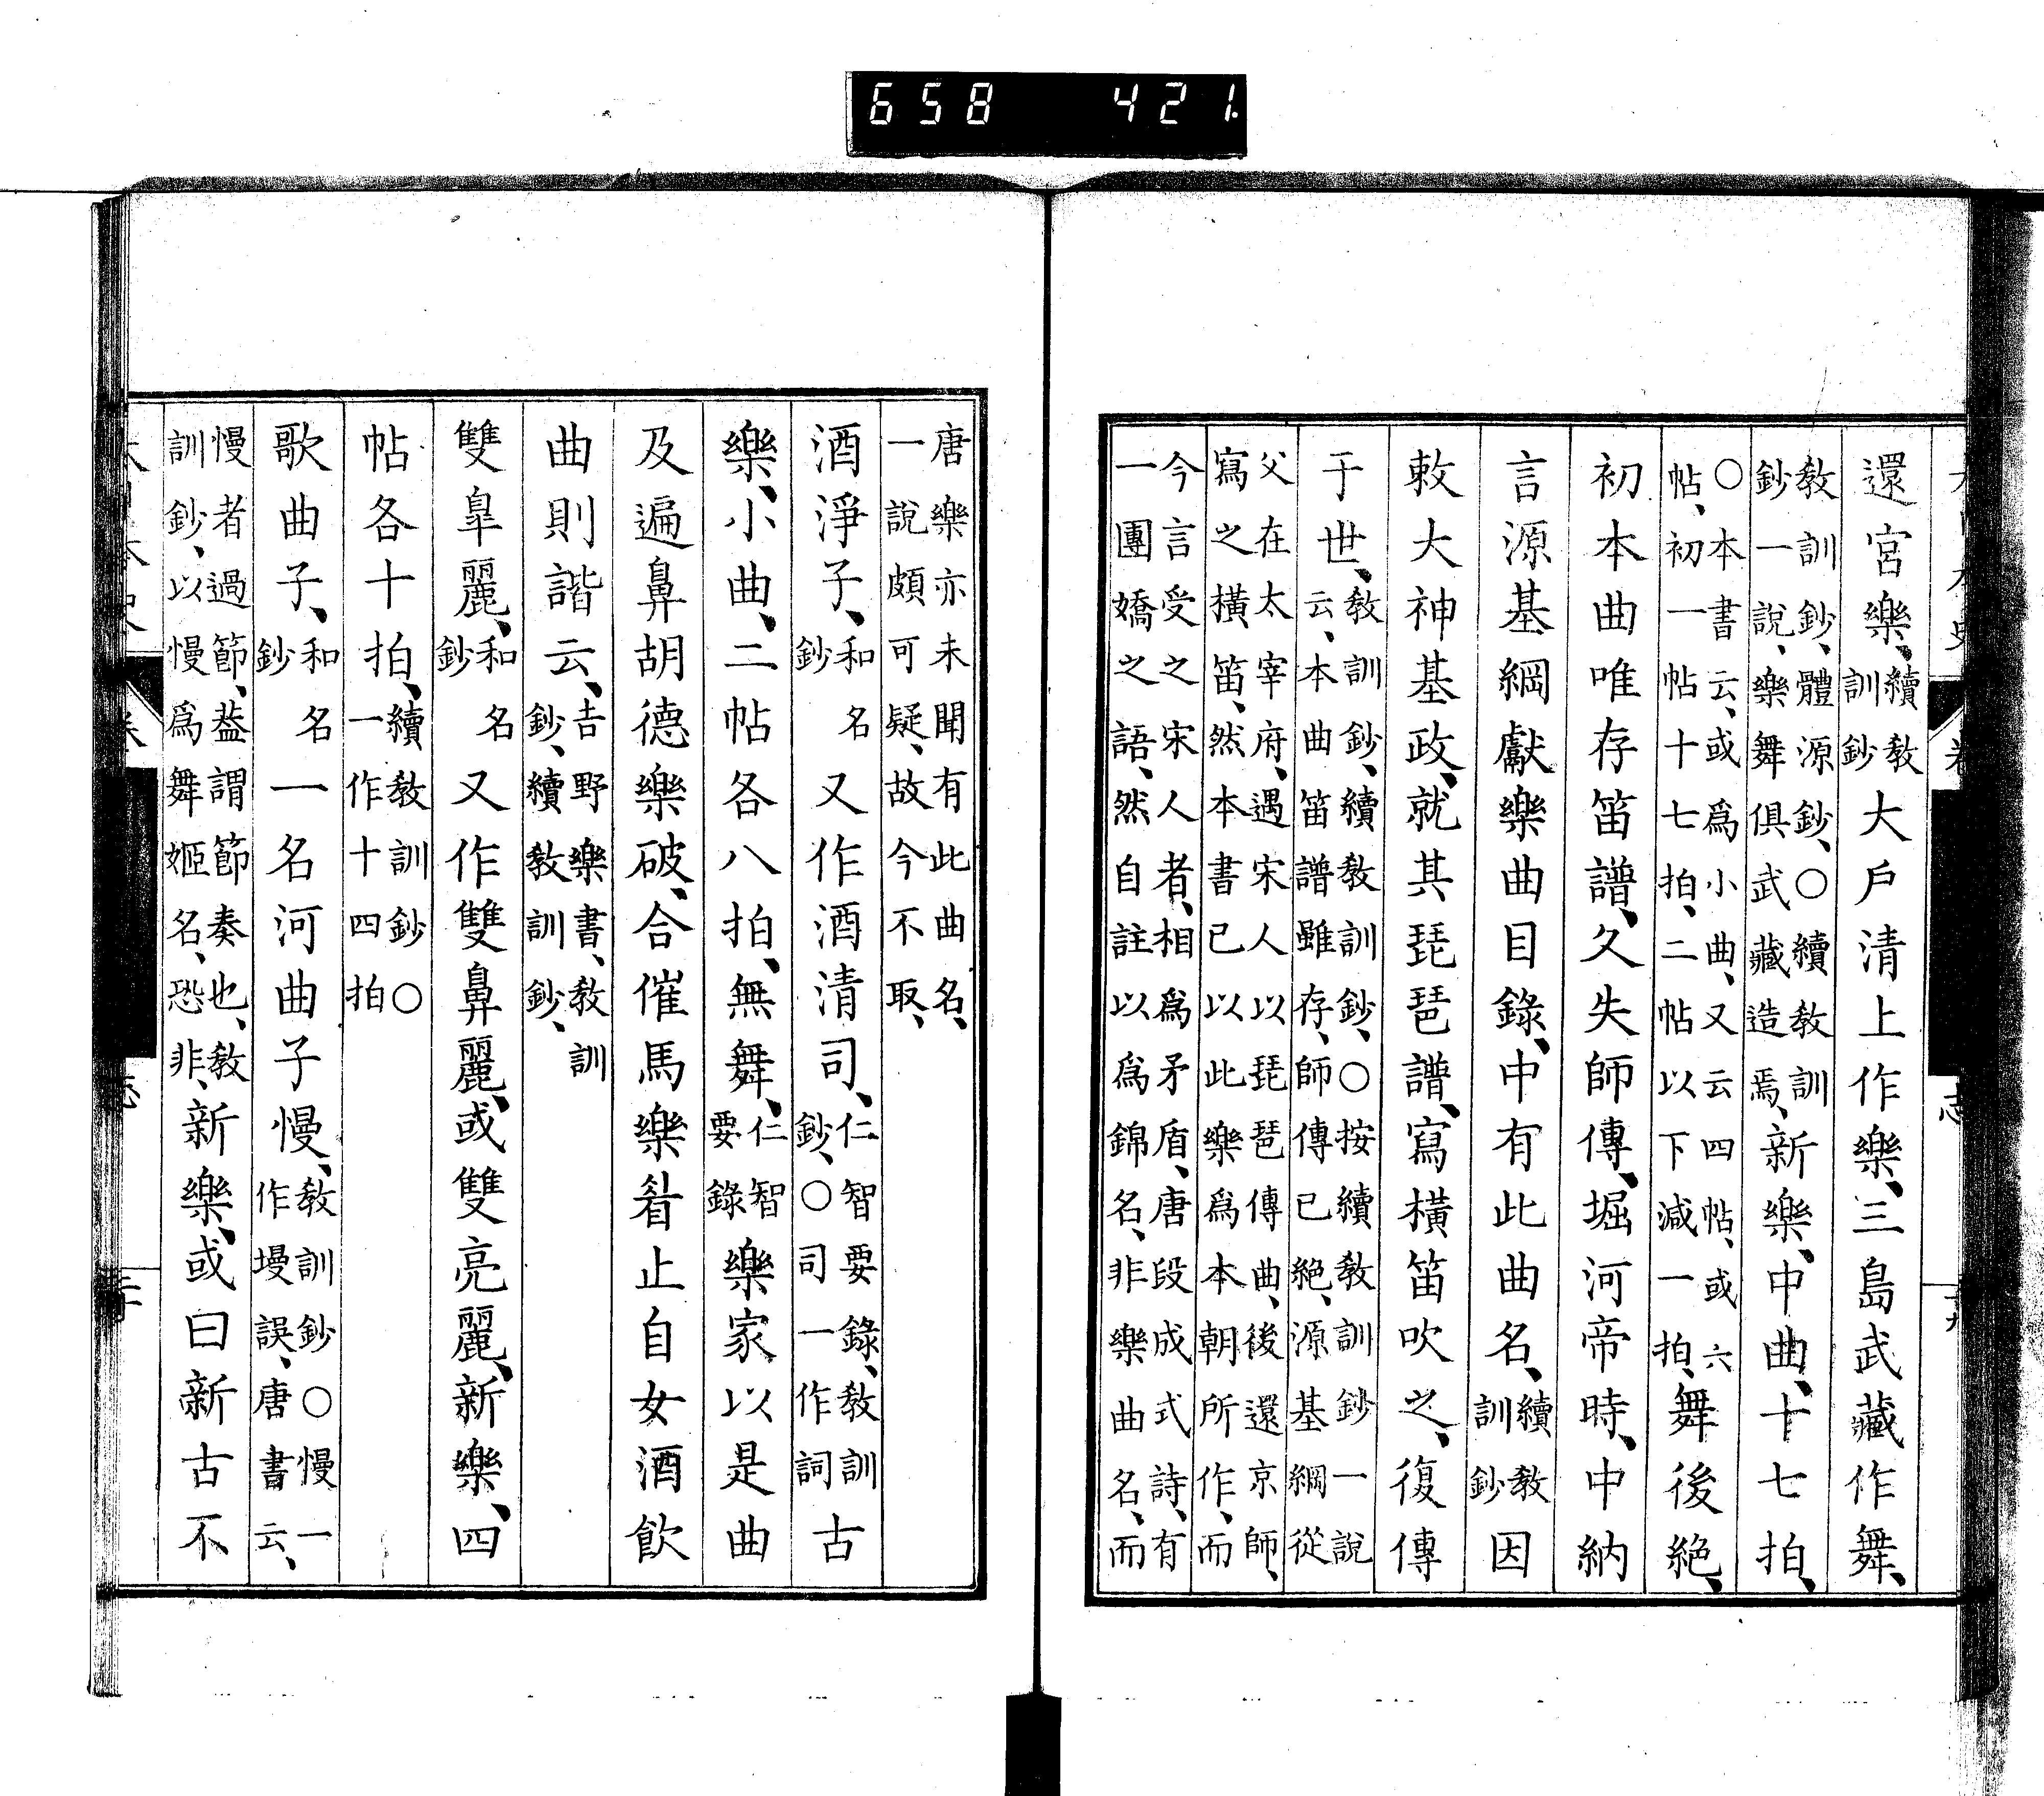 658 421
還宮樂、續教訓鈔大戶清上作樂、三島武藏作舞、
教訓鈔、體源鈔、○續教訓
鈔一說、樂舞俱武藏造焉、新樂、中曲、十七拍、
○本書云、或爲小曲、又云四帖、或六
帖、初一帖十七拍、二帖以下減一拍、舞後絕、
初本曲唯存笛譜、久失師傳、堀河帝時、中納
言源基綱獻樂曲目錄、中有此曲名、續教訓鈔因
敕大神基政、就其琵琶譜、寫橫笛吹之、復傳
于世、教訓鈔、續教訓鈔、○按續教訓鈔一說
云、本曲笛譜雖存、師傳已絕、源基綱從
父在太宰府、遇宋人以琵琶傳曲、後還京師、
寫之橫笛、然本書已以此樂爲本朝所作、而
今言受之宋人者、相爲矛盾、唐段成式詩、有
一團嬌之語、然自註以爲錦名、非樂曲名、而
唐樂亦未聞有此曲名、
一說頗可疑、故今不取、
酒淨子、和名鈔又作酒清司、仁智要錄、教訓鈔、○司一作詞古
樂、小曲、二帖各八拍、無舞、仁智要錄樂家以是曲
及遍鼻胡德樂破、合催馬樂眉止自女酒飮
曲則諧云、吉野樂書、教訓鈔、續教訓鈔、
雙皐麗、和名鈔又作雙鼻麗、或雙亮麗、新樂、四
帖各十拍、續教訓鈔○一作十四拍
歌曲子、和名鈔一名河曲子慢、教訓鈔○慢一作墁誤、唐書云、
慢者過節、葢謂節奏也、教
訓鈔、以慢爲舞姬名、恐非、新樂、或曰新古不